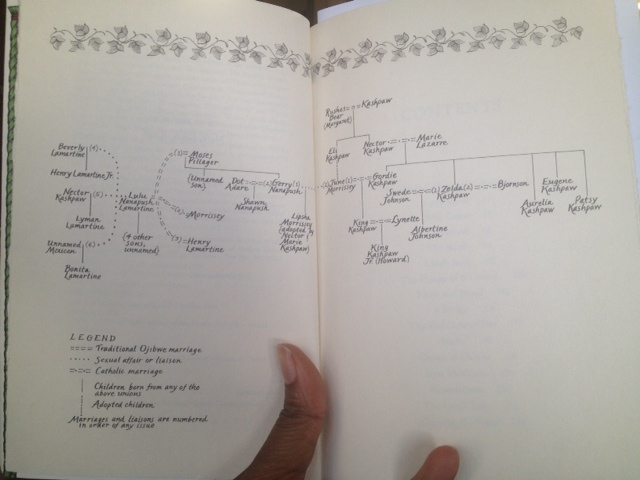 Beverly (4)
Lamartine
Henry Lamartine, Jr.
Nector
Kashpaw (5)
Lyman
Lamartine
Unnamed
Mexican (6)
Bonita
Lamartine
Lulu
Nanapush
Lamartine
(4 other
sons,
unnamed)
(1) Moses
Pillager
(Unnamed
son)
(2) Morrissey
(3) Henry
Lamartine
Dot (2) Gerry (1)
Adare Nanapush
Shawn
Nanapush
Lipsha
Morrissey
(adopted by
Nector &
Marie
Kashpaw)
Rushes Kashpaw
Bear
(Margaret)
Eli
Kashpaw
Nector Marie
Kashpaw Lazarre
(2) June (1) Gordie
Morrissey Kashpaw
King Lynette
Kashpaw
King
Kashpaw
Jr. (Howard)
Swede (1) Zelda (2) Bjornson
Johnson Kashpaw
Albertine
Johnson
Aurelia
Kashpaw
Eugene
Kashpaw
Patsy
Kashpaw
LEGEND
Traditional Ojibwe marriage
Sexual affair or liaison
Catholic marriage
Children born from any of the
above unions
Adopted children
Marriages and liaisons are numbered
in order of any issue